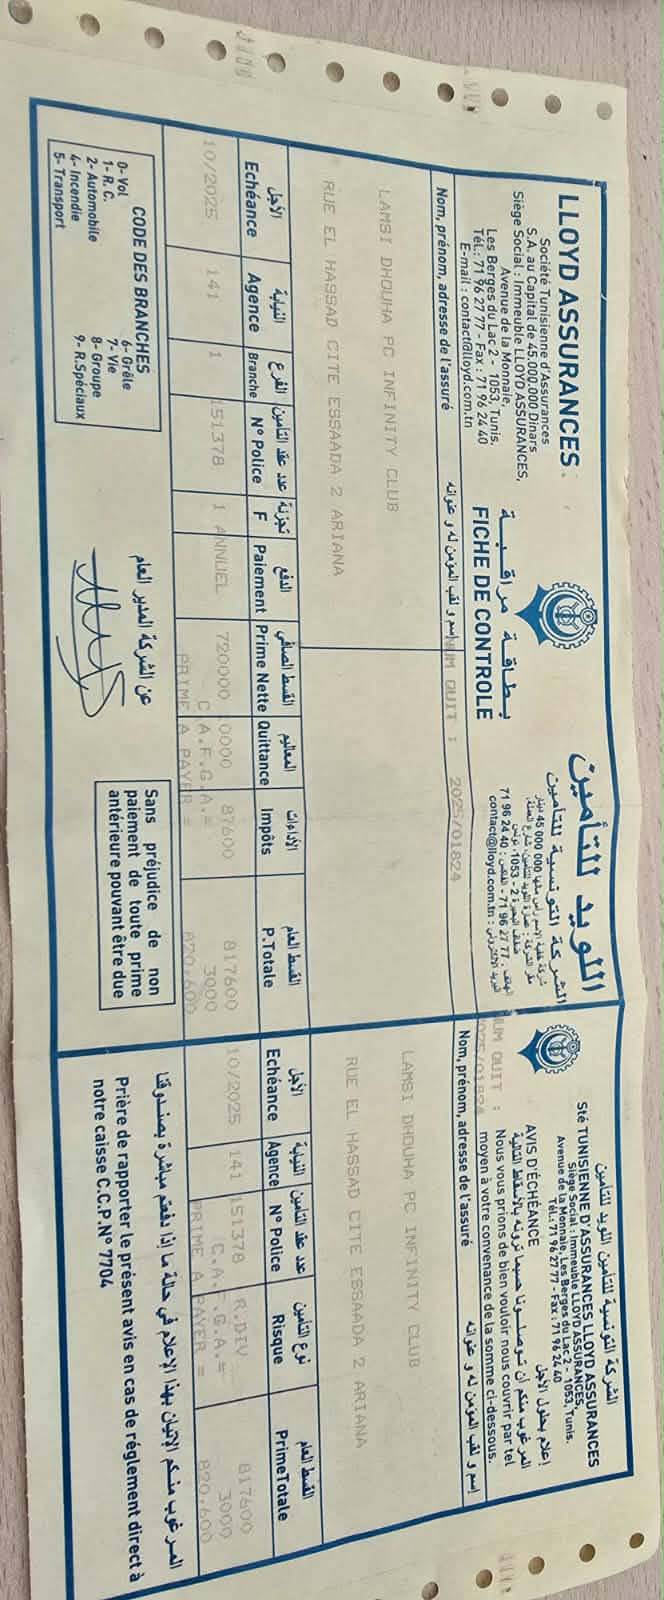 LLOYD ASSURANCES
Société Tunisienne d'Assurances
S.A. au Capital de 45.000.000 Dinars
Siège Social : Immeuble LLOYD ASSURANCES,
Avenue de la Monnaie,
Les Berges du Lac 2 - 1053, Tunis.
Tél.: 71 96 27 77 - Fax : 71 96 24 40
E-mail : contact@lloyd.com.tn
بطاقة مراقبة
FICHE DE CONTROLE
اللويد للتأمين
الشركة التونسية للتأمين
71 96 24 40 : الفاكس - 71 96 27 77 : الهاتف
contact@lloyd.com.tn : البريد الالكتروني
Nom, prénom, adresse de l'assuré
إسم و لقب المؤمن له و عنوانه
NUM QUIT : 2025/01824
LAMSI DHOUHA PC INFINITY CLUB
RUE EL HASSAD CITE ESSAADA 2 ARIANA
الأجل النيابة الفرع عدد عقد التأمين تجزئة الدفع القسط الصافي المعاليم الأداءات القسط العام
Echéance Agence Branche N° Police F Paiement Prime Nette Quittance Impôts P.Totale
10/2025 141 1 151378 1 ANNUEL 720000 10000 87600 817600
C.A.F.G.A.= 3000
PRIME A PAYER = 820,600
CODE DES BRANCHES
0- Vol
1- R. C.
2- Automobile
4- Incendie
5- Transport
6- Grêle
7- Vie
8- Groupe
9- R.Spéciaux
عن الشركة المدير العام
Sans préjudice de non
paiement de toute prime
antérieure pouvant être due
الشركة التونسية للتأمين اللويد للتأمين
Sté TUNISIENNE D'ASSURANCES LLOYD ASSURANCES
Siège Social : Immeuble LLOYD ASSURANCES,
Avenue de la Monnaie, Les Berges du Lac 2 - 1053, Tunis.
Tél.: 71 96 27 77 - Fax : 71 96 24 40
AVIS D'ÉCHÉANCE
إعلام بحلول الأجل
المرغوب منكم أن توصلونا حسبما ترونه بالأسقاط التالية
Nous vous prions de bien vouloir nous couvrir par tel
moyen à votre convenance de la somme ci-dessous.
NUM QUIT :
2025/01824
Nom, prénom, adresse de l'assuré
إسم و لقب المؤمن له و عنوانه
LAMSI DHOUHA PC INFINITY CLUB
RUE EL HASSAD CITE ESSAADA 2 ARIANA
الأجل النيابة عدد عقد التأمين نوع التأمين القسط العام
Echéance Agence N° Police Risque PrimeTotale
10/2025 141 151378 R.DIV 817600
C.A.F.G.A.= 3000
PRIME A PAYER = 820,600
المرغوب منكم الإتيان بهذا الإعلام في حالة ما إذا دفعتم مباشرة بصندوقنا
Prière de rapporter le présent avis en cas de réglement direct à
notre caisse C.C.P.N° 7704